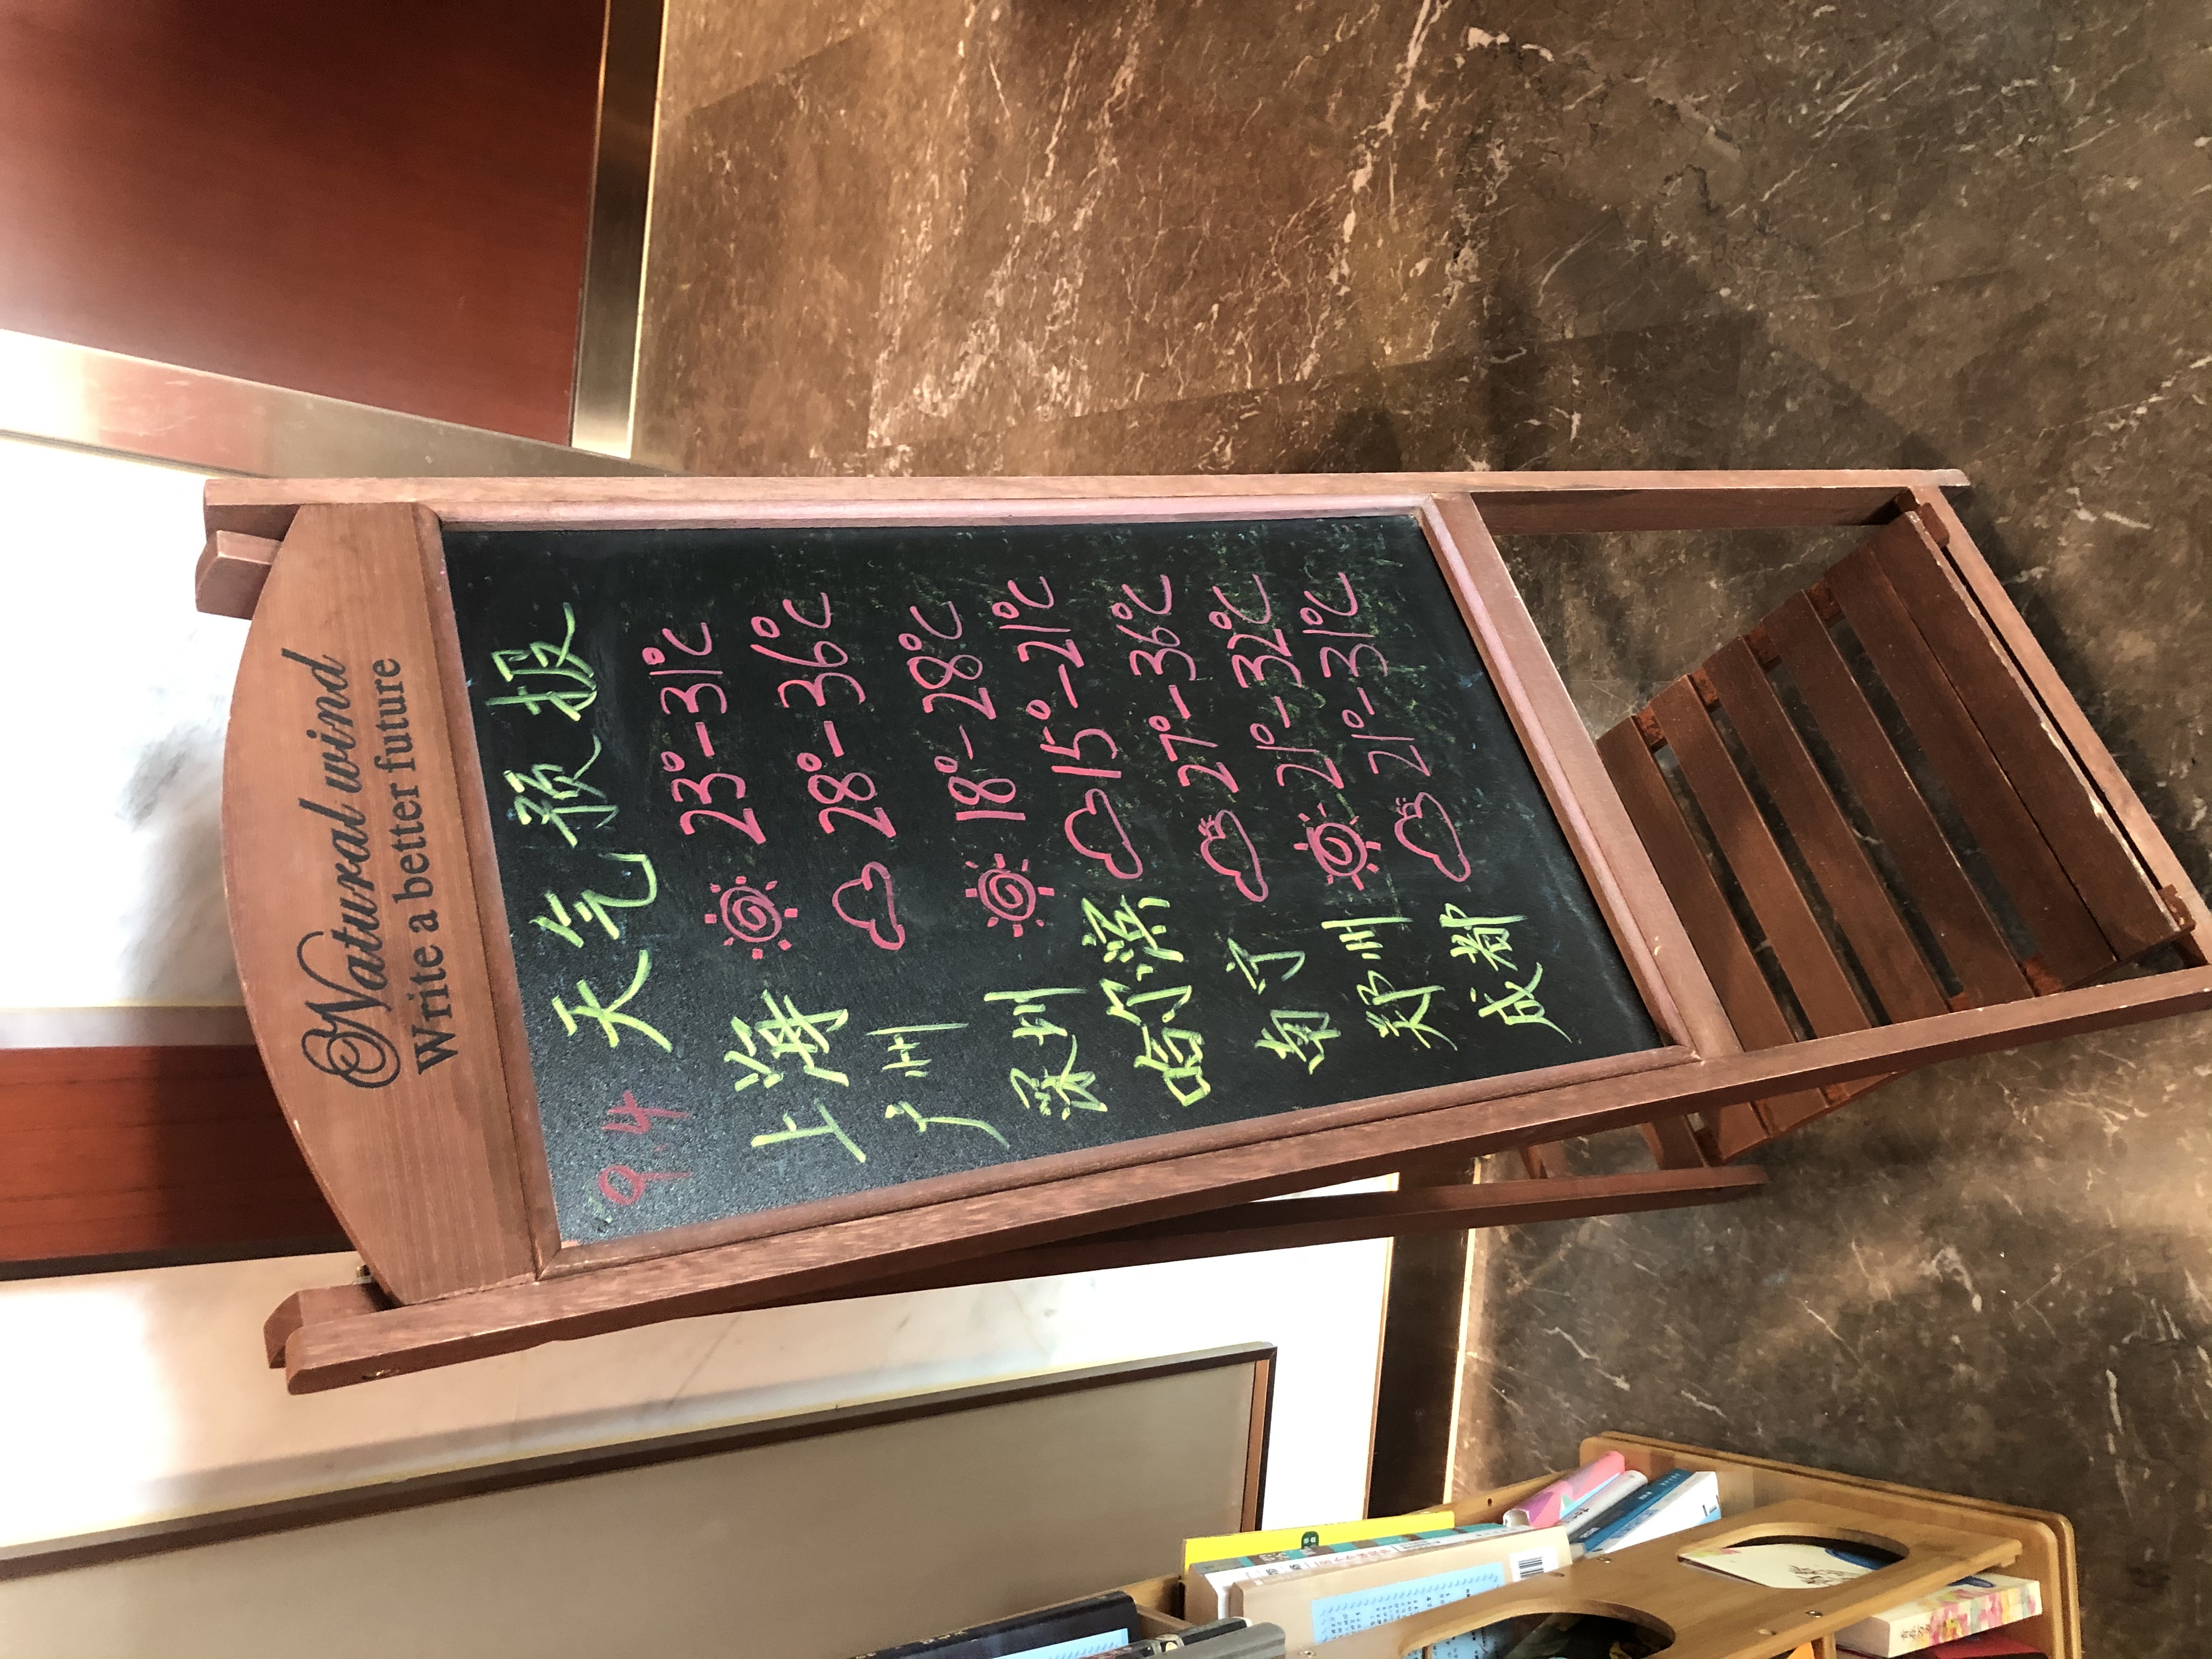 Natural wind
Write a better future
9.4 天气预报
上海 23°-31℃
广州 28°-36℃
深圳 18°-28℃
哈尔滨 15°-21℃
南宁 27°-36℃
郑州 21°-32℃
成都 21°-31℃